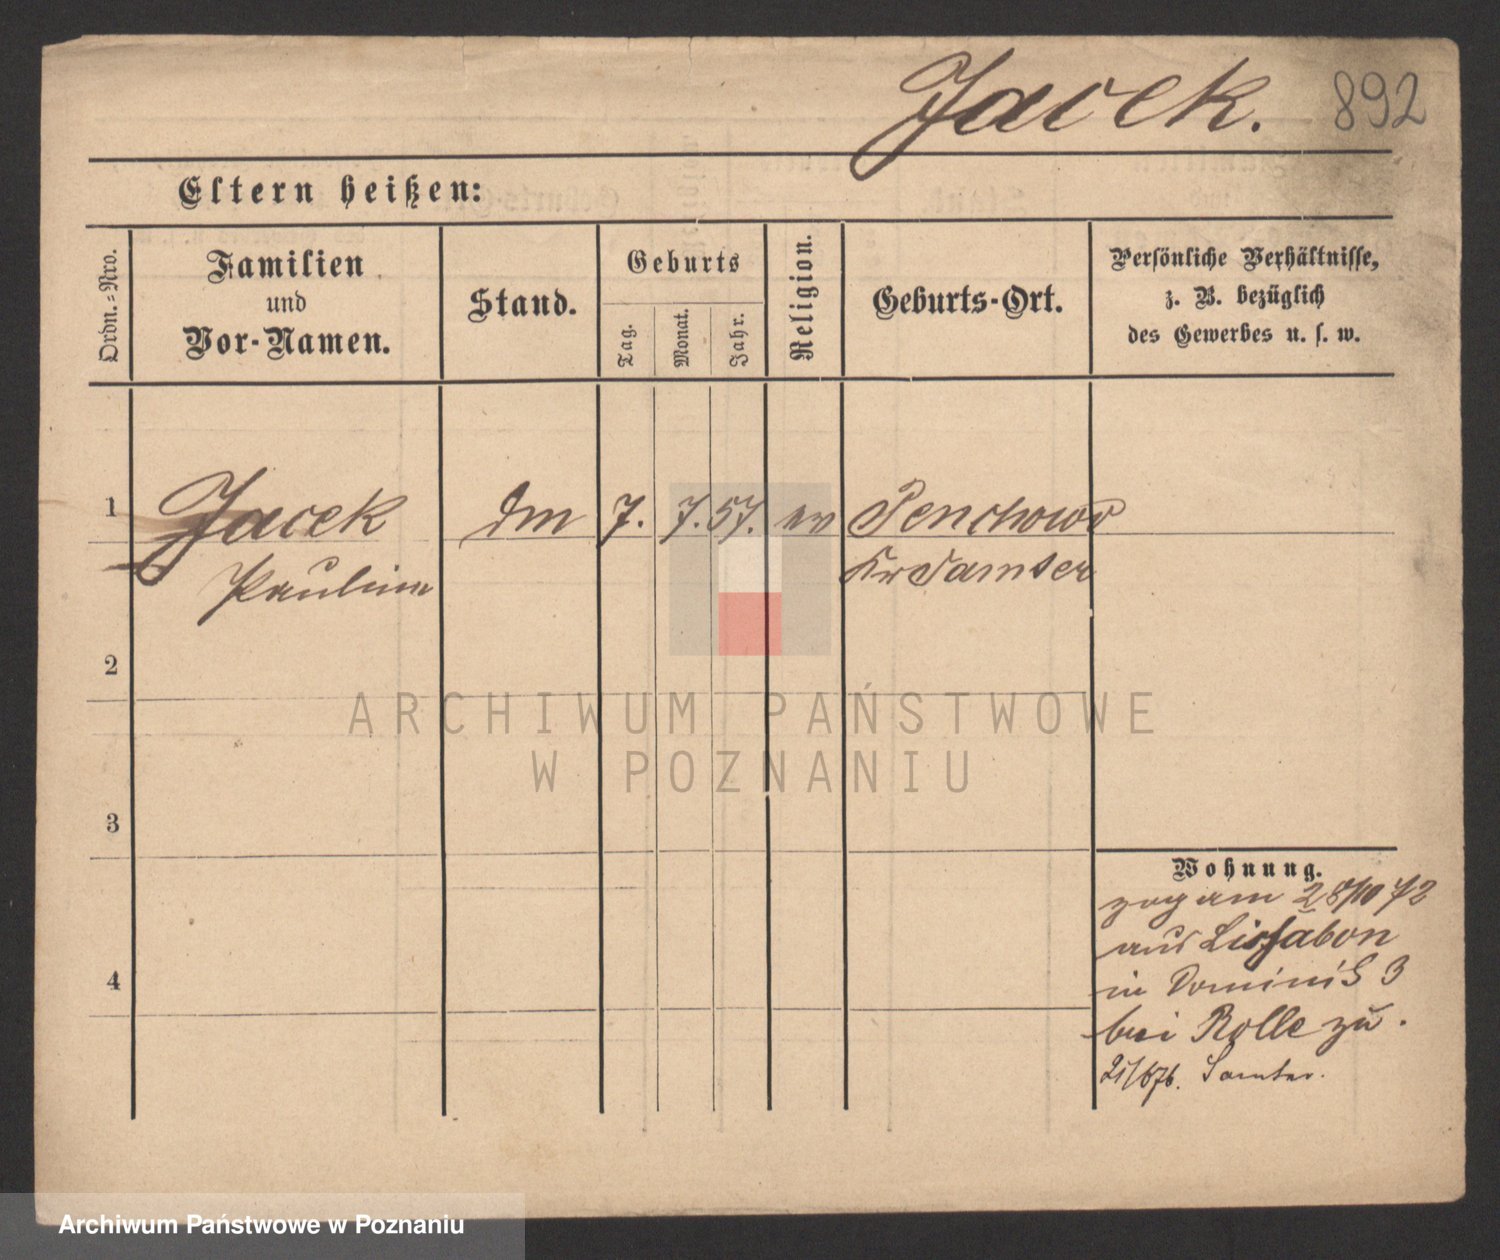 Jacek. 892
Eltern heißen:
Ordn.=Nro.
Familien
und
Vor-Namen.
Stand.
Geburts
Tag.
Monat.
Jahr.
Religion.
Geburts-Ort.
Persönliche Verhältnisse,
z. B. bezüglich
des Gewerbes u. s. w.
1 Jacek Dm 7. 7. 57. ev Penchowo
Pauline Kr Samter
2
3
4
Wohnung.
zog am 28/10 72
aus Lissabon
in Dominik 3
bei Rolle zu.
21/6 76. Samter.
ARCHIWUM PAŃSTWOWE
W POZNANIU
Archiwum Państwowe w Poznaniu